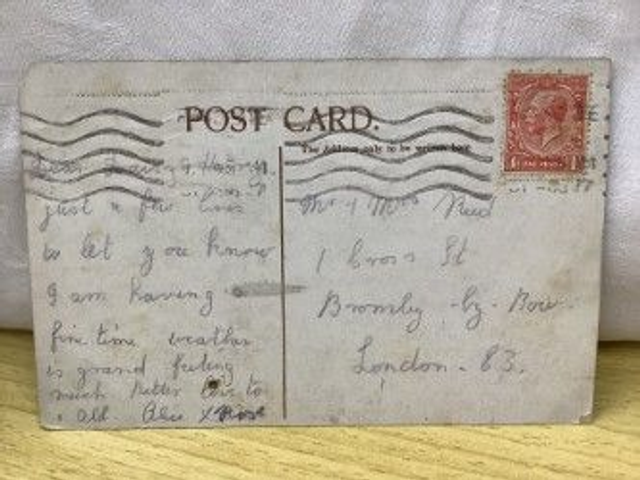 POST CARD.
The Address only to be written here
just a few lines
to let you know
I am having
fine time weather
is grand feeling
much better love to
all.
Mr & Mrs
1 Cross St
Bromley-by-Bow
London. E3.